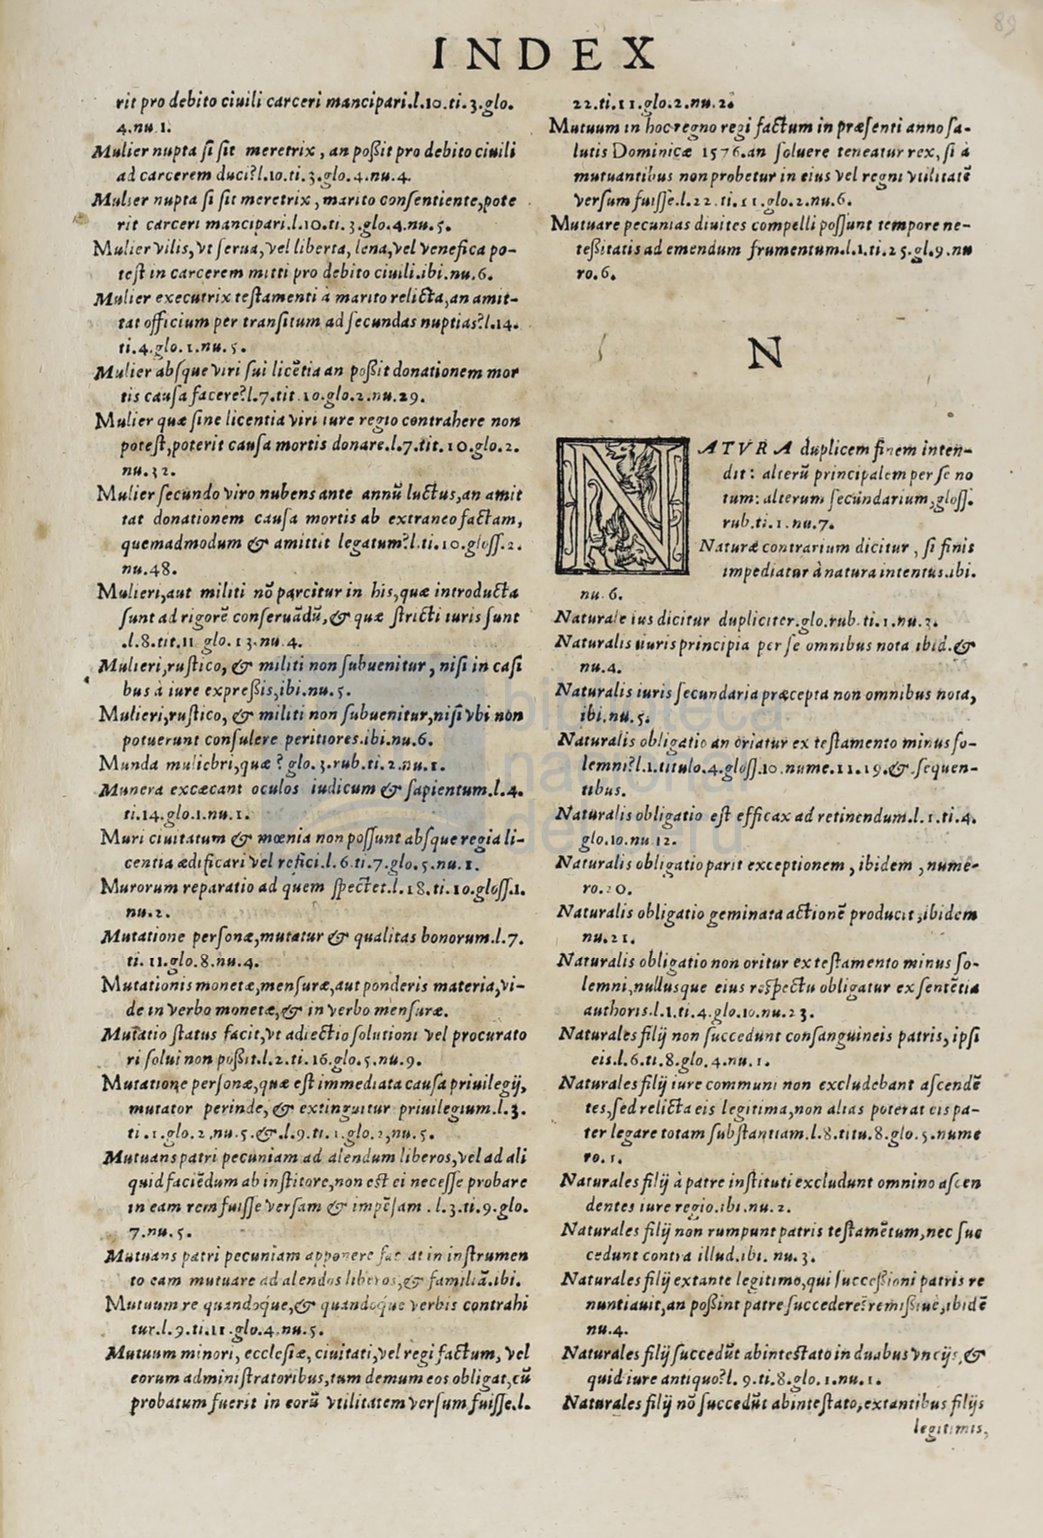 89
INDEX
rit pro debito ciuili carceri mancipari.l.10.ti.3.glo.
4.nu.1.
Mulier nupta si sit meretrix, an poßit pro debito ciuili
ad carcerem duci?l.10.ti.3.glo.4.nu.4.
Mulier nupta si sit meretrix, marito consentiente,pote
rit carceri mancipari.l.10.ti.3.glo.4.nu.5.
Mulier vilis,vt serua,vel liberta, lena,vel venefica po-
test in carcerem mitti pro debito ciuili.ibi.nu.6.
Mulier executrix testamenti à marito relicta,an amit-
tat officium per transitum ad secundas nuptias?l.14.
ti.4.glo.1.nu.5.
Mulier absque viri sui licẽtia an poßit donationem mor
tis causa facere?l.7.tit.10.glo.2.nu.29.
Mulier quæ sine licentia viri iure regio contrahere non
potest,poterit causa mortis donare.l.7.tit.10.glo.2.
nu.32.
Mulier secundo viro nubens ante annũ luctus,an amit
tat donationem causa mortis ab extraneo factam,
quemadmodum & amittit legatum?l.ti.10.gloss.2.
nu.48.
Mulieri,aut militi nõ parcitur in his,quæ introducta
sunt ad rigorẽ conseruãdũ,& quæ stricti iuris sunt
.l.8.tit.11 glo.13.nu.4.
Mulieri,rustico, & militi non subuenitur, nisi in casi
bus à iure expreßis,ibi.nu.5.
Mulieri,rustico, & militi non subuenitur,nisi vbi non
potuerunt consulere peritiores.ibi.nu.6.
Munda muliebri,quæ? glo.3.rub.ti.2.nu.1.
Munera excæcant oculos iudicum & sapientum.l.4.
ti.14.glo.1.nu.1.
Muri ciuitatum & mœnia non possunt absque regia li-
centia ædificari vel refici.l.6.ti.7.glo.5.nu.1.
Murorum reparatio ad quem spectet.l.18.ti.10.gloss.1.
nu.2.
Mutatione personæ,mutatur & qualitas bonorum.l.7.
ti.11.glo.8.nu.4.
Mutationis monetæ,mensuræ,aut ponderis materia,vi-
de in verbo monetæ,& in verbo mensuræ.
Mutatio status facit,vt adiectio solutioni vel procurato
ri solui non poßit.l.2.ti.16.glo.5.nu.9.
Mutatione personæ,quæ est immediata causa priuilegij,
mutator perinde, & extinguitur priuilegium.l.3.
ti.1.glo.2.nu.5.&.l.9.ti.1.glo.2,nu.5.
Mutuans patri pecuniam ad alendum liberos,vel ad ali
quid faciẽdum ab institore,non est ei necesse probare
in eam rem fuisse versam & impẽsam.l.3.ti.9.glo.
7.nu.5.
Mutuans patri pecuniam apponere fac at in instrumen
to eam mutuare ad alendos liberos,& familiã.ibi.
Mutuum re quandoque,& quandoque verbis contrahi
tur.l.9.ti.11.glo.4.nu.5.
Mutuum minori, ecclesiæ, ciuitati,vel regi factum, vel
eorum administratoribus,tum demum eos obligat,cũ
probatum fuerit in eorũ vtilitatem versum fuisse.l.
22.ti.11.glo.2.nu.2.
Mutuum in hoc regno regi factum in præsenti anno sa-
lutis Dominicæ 1576.an soluere teneatur rex,si à
mutuantibus non probetur in eius vel regni vtilitatẽ
versum fuisse.l.22.ti.11.glo.2.nu.6.
Mutuare pecunias diuites compelli possunt tempore ne-
teßitatis ad emendum frumentum.l.1.ti.25.gl.9.nu
ro.6.
N
NATVRA duplicem finem inten-
dit: alterũ principalem per se no
tum: alterum secundarium,gloss.
rub.ti.1.nu.7.
Naturæ contrarium dicitur, si finis
impediatur à natura intentus.ibi.
nu.6.
Naturale ius dicitur dupliciter.glo.rub.ti.1.nu.3.
Naturalis iuris principia per se omnibus nota ibid.&
nu.4.
Naturalis iuris secundaria præcepta non omnibus nota,
ibi.nu.5.
Naturalis obligatio an oriatur ex testamento minus so-
lemni?l.1.titulo.4.gloss.10.nume.11.19.& sequen-
tibus.
Naturalis obligatio est efficax ad retinendum.l.1.ti.4.
glo.10.nu 12.
Naturalis obligatio parit exceptionem, ibidem, nume-
ro.20.
Naturalis obligatio geminata actionẽ producit,ibidem
nu.21.
Naturalis obligatio non oritur ex testamento minus so-
lemni,nullusque eius respectu obligatur ex sentẽtia
authoris.l.1.ti.4.glo.10.nu.23.
Naturales filij non succedunt consanguineis patris, ipsi
eis.l.6.ti.8.glo.4.nu.1.
Naturales filij iure communi non excludebant ascendẽ
tes,sed relicta eis legitima,non alias poterat eis pa-
ter legare totam substantiam.l.8.titu.8.glo.5.nume
ro.1.
Naturales filij à patre instituti excludunt omnino ascen
dentes iure regio.ibi.nu.2.
Naturales filij non rumpunt patris testamẽtum,nec suc
cedunt contra illud.ibi.nu.3.
Naturales filij extante legitimo,qui successioni patris re
nuntiauit,an poßint patre succedere?remißiuè,ibidẽ
nu.4.
Naturales filij succedũt abintestato in duabus vncijs,&
quid iure antiquo?l.9.ti.8.glo.1.nu.1.
Naturales filij nõ succedũt abintestato,extantibus filijs
legitimis,